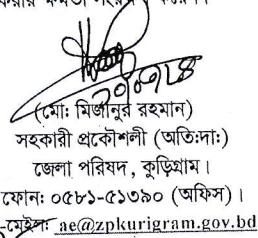 (মো: মিজানুর রহমান)
সহকারী প্রকৌশলী (অতি:দা:)
জেলা পরিষদ, কুড়িগ্রাম।
ফোন: ০৫৮১-৫১৩৯০ (অফিস)।
-মেইল: ae@zpkurigram.gov.bd